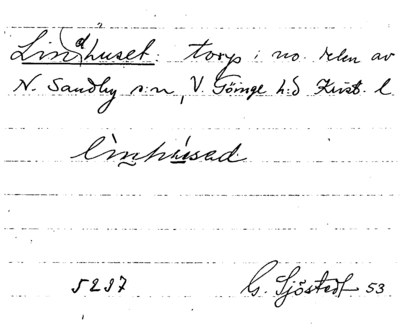 Lin(d?)huset: torp i no. delen av
N. Sandby s:n, V. Göinge h:d Krist. l
linhusad
5297 G. Sjöstedt 53